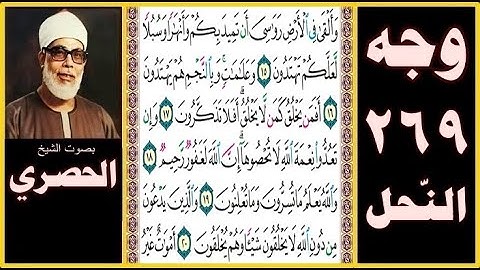 وَأَلْقَىٰ فِي ٱلْأَرْضِ رَوَٰسِيَ أَن تَمِيدَ بِكُمْ وَأَنْهَٰرًا وَسُبُلًا
لَّعَلَّكُمْ تَهْتَدُونَ ١٥ وَعَلَٰمَٰتٍ وَبِٱلنَّجْمِ هُمْ يَهْتَدُونَ
١٦ أَفَمَن يَخْلُقُ كَمَن لَّا يَخْلُقُ أَفَلَا تَذَكَّرُونَ ١٧ وَإِن
تَعُدُّوا۟ نِعْمَةَ ٱللَّهِ لَا تُحْصُوهَآ إِنَّ ٱللَّهَ لَغَفُورٌ رَّحِيمٌ ١٨
وَٱللَّهُ يَعْلَمُ مَا تُسِرُّونَ وَمَا تُعْلِنُونَ ١٩ وَٱلَّذِينَ يَدْعُونَ
مِن دُونِ ٱللَّهِ لَا يَخْلُقُونَ شَيْـًٔا وَهُمْ يُخْلَقُونَ ٢٠ أَمْوَٰتٌ غَيْرُ
وجه
٢٦٩
النّحل
بصوت الشيخ
الحصري